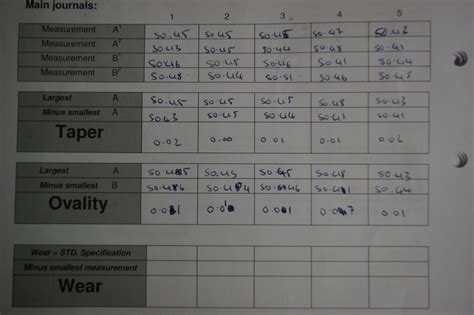 Main journals:
1 2 3 4 5
Measurement A¹ 50.45 50.45 50.47 50.43
Measurement A² 50.43 50.45 50.44 50.48 50.41
Measurement B¹ 50.46 50.45 50.46 50.41 50.44
Measurement B² 50.48 50.44 50.51 50.46 50.45
Largest A 50.45 50.45 50.45 50.48 50.43
Minus smallest A 5043 50.45 50.44 50.41 50.41
Taper 0.02 0.00 0.01 0.01 0.02
Largest A 50.45 50.48 50.43
Minus smallest B 50.44
Ovality 0.01
Wear = STD. Specification
Minus smallest measurement
Wear